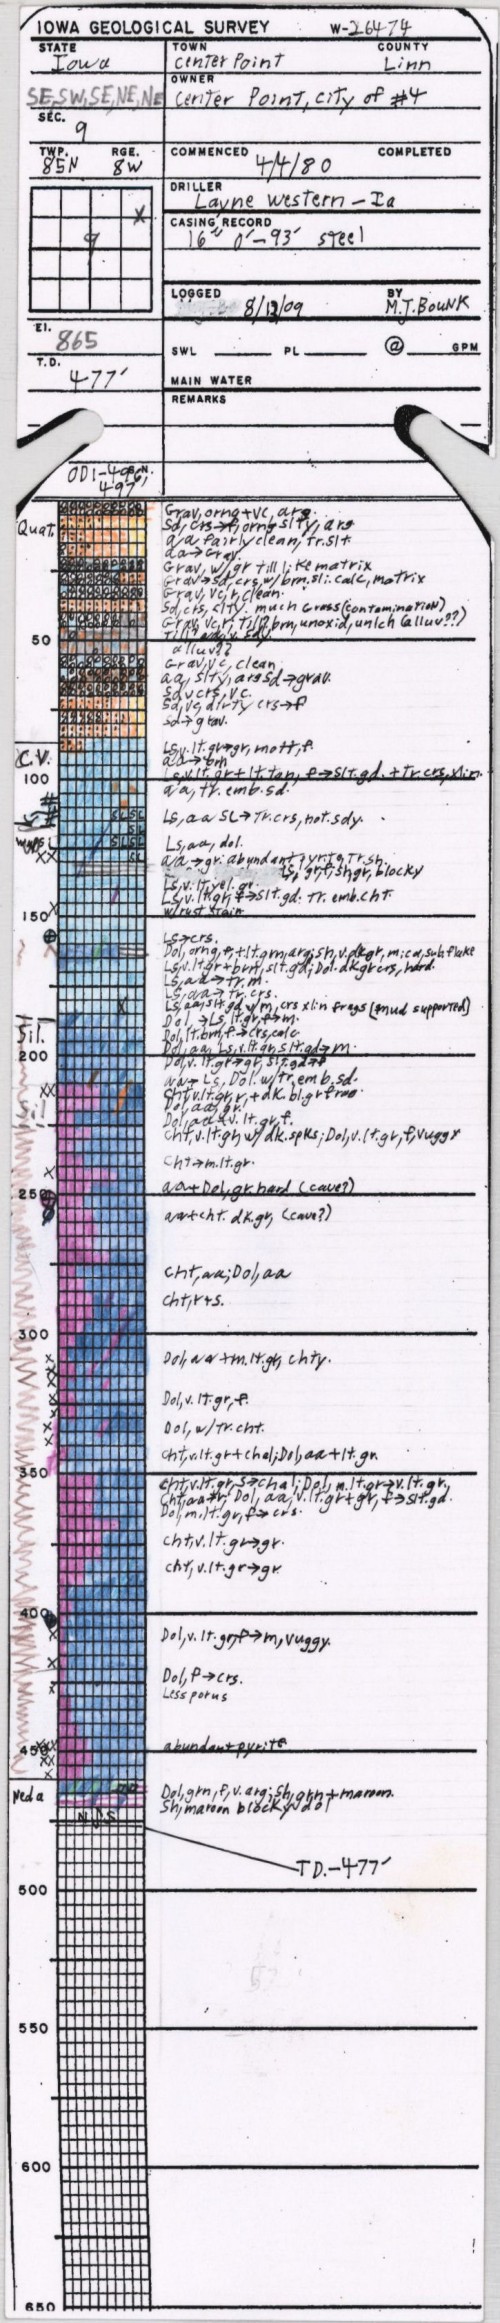 IOWA GEOLOGICAL SURVEY W-26474
STATE
Iowa
TOWN COUNTY
Center Point Linn
OWNER
SE, SW, SE, NE, NE Center Point, city of #4
SEC.
9
TWP. RGE.
85N 8W
COMMENCED COMPLETED
4/4/80
DRILLER
Layne Western - Ia
CASING RECORD
16" 0'-93' steel
X
9
LOGGED BY
8/12/09 M.J. Bounk
El.
865
SWL PL @ GPM
T.D.
477'
MAIN WATER
REMARKS
497
Quat.
Grav, orng+vc, arg.
Sd, crs→f, orng slty, arg
aa fairly clean, Tr. slt
aa→Grav.
Grav, w/gr till like matrix
Grav→sd, crs, w/brn, sli. calc, matrix
Grav, vc, r, clean.
Sd, crs, slty. much Grass (contamination)
Grav, vc, r, Till? brn, unoxid, unlch (alluv??)
50
alluv??
Grav, vc, clean
aa, slty, arg sd→grav.
Sd, vcrs, vc.
Sd, vc, dirty crs→f
sd→grav.
C.V.
Ls, v.lt.gr→gr, mott, f.
aa→brn
Ls, v.lt.gr+lt.tan, f→slt.gd.+Tr.crs, xlin
100
aa, tr. emb. sd.
Ls, aa SL→Tr. crs, not. sdy.
SL SL
SL
SL SL
SL
Ls, aa, dol.
aa→gr. abundant pyrite Tr. sh.
Ls, gr, f; sh, gr, blocky
Ls, v.lt. yel. gr.
Ls, v.lt.gr, f→slt.gd. Tr. emb. cht.
150
w/rust stain
Ls→crs.
Dol, orng, f, +lt.grn, arg; sh, v.dk.gr, mica, sub. flake
Ls, v.lt.gr+brn, slt.gd; Dol. dk gr crs, hard.
Ls, aa→tr. m.
Ls, aa→tr. crs.
Ls, aa, slt.gd w/m, crs xlin frags (mud supported)
Dol→Ls, lt.gr, f→m.
Sil.
Dol, lt.brn, f→crs, calc
Dol, aa, Ls, v.lt.gr, slt.gd→m.
200
Dol, v.lt.gr→gr, slt.gd→f
aa→Ls, Dol. w/tr. emb. sd.
Cht, v.lt.gr, r, +dk. bl.gr frag.
Sil
Dol, aa, gr.
Dol, aa→v.lt.gr, f.
Cht, v.lt.gr, w/dk. spks; Dol, v.lt.gr, f, vuggy
Cht→m.lt.gr.
250
aa+Dol, gr. hard (cave?)
aa+cht. dk.gr, (cave?)
Cht, aa; Dol, aa
Cht, r+s.
300
Dol, aa+m.lt.gr, chty.
Dol, v.lt.gr, f.
Dol, w/Tr. cht.
Cht, v.lt.gr+chal; Dol, aa+lt.gr.
350
Cht, v.lt.gr, s→chal; Dol, m.lt.gr→v.lt.gr,
Cht, aa+r; Dol, aa, v.lt.gr+gr, f→slt.gd.
Dol, m.lt.gr, f→crs.
cht, v.lt.gr→gr.
cht, v.lt.gr→gr.
400
Dol, v.lt.gr, f→m, vuggy.
Dol, f→crs.
Less porus
450
abundant pyrite
Neda
Dol, grn, f, v.arg; Sh, grn+maroon.
Sh, maroon blocky, dol
N/S
T.D.-477'
500
550
600
650